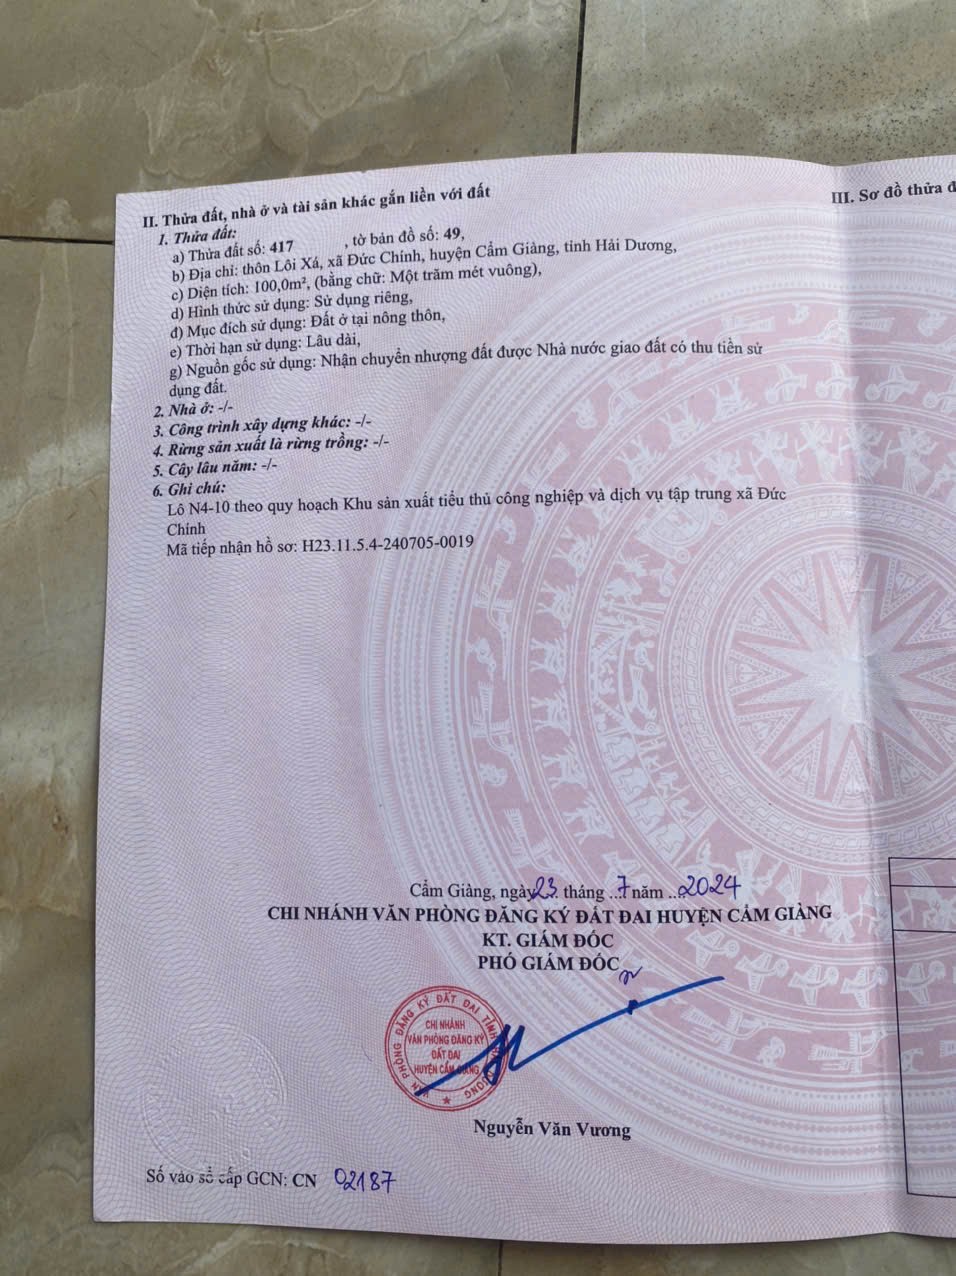 II. Thửa đất, nhà ở và tài sản khác gắn liền với đất
1. Thửa đất:
a) Thửa đất số: 417 , tờ bản đồ số: 49,
b) Địa chỉ: thôn Lôi Xá, xã Đức Chính, huyện Cẩm Giàng, tỉnh Hải Dương,
c) Diện tích: 100,0m², (bằng chữ: Một trăm mét vuông),
d) Hình thức sử dụng: Sử dụng riêng,
đ) Mục đích sử dụng: Đất ở tại nông thôn,
e) Thời hạn sử dụng: Lâu dài,
g) Nguồn gốc sử dụng: Nhận chuyển nhượng đất được Nhà nước giao đất có thu tiền sử
dụng đất.
2. Nhà ở: -/-
3. Công trình xây dựng khác: -/-
4. Rừng sản xuất là rừng trồng: -/-
5. Cây lâu năm: -/-
6. Ghi chú:
Lô N4-10 theo quy hoạch Khu sản xuất tiểu thủ công nghiệp và dịch vụ tập trung xã Đức
Chính
Mã tiếp nhận hồ sơ: H23.11.5.4-240705-0019
III. Sơ đồ thửa đ
Cẩm Giàng, ngày 23 tháng ...7 năm ...2024
CHI NHÁNH VĂN PHÒNG ĐĂNG KÝ ĐẤT ĐAI HUYỆN CẨM GIÀNG
KT. GIÁM ĐỐC
PHÓ GIÁM ĐỐC
VĂN PHÒNG ĐĂNG KÝ ĐẤT ĐAI TỈNH
CHI NHÁNH
VĂN PHÒNG ĐĂNG KÝ
ĐẤT ĐAI
HUYỆN CẨM GIÀNG
Nguyễn Văn Vương
Số vào sổ cấp GCN: CN 02187